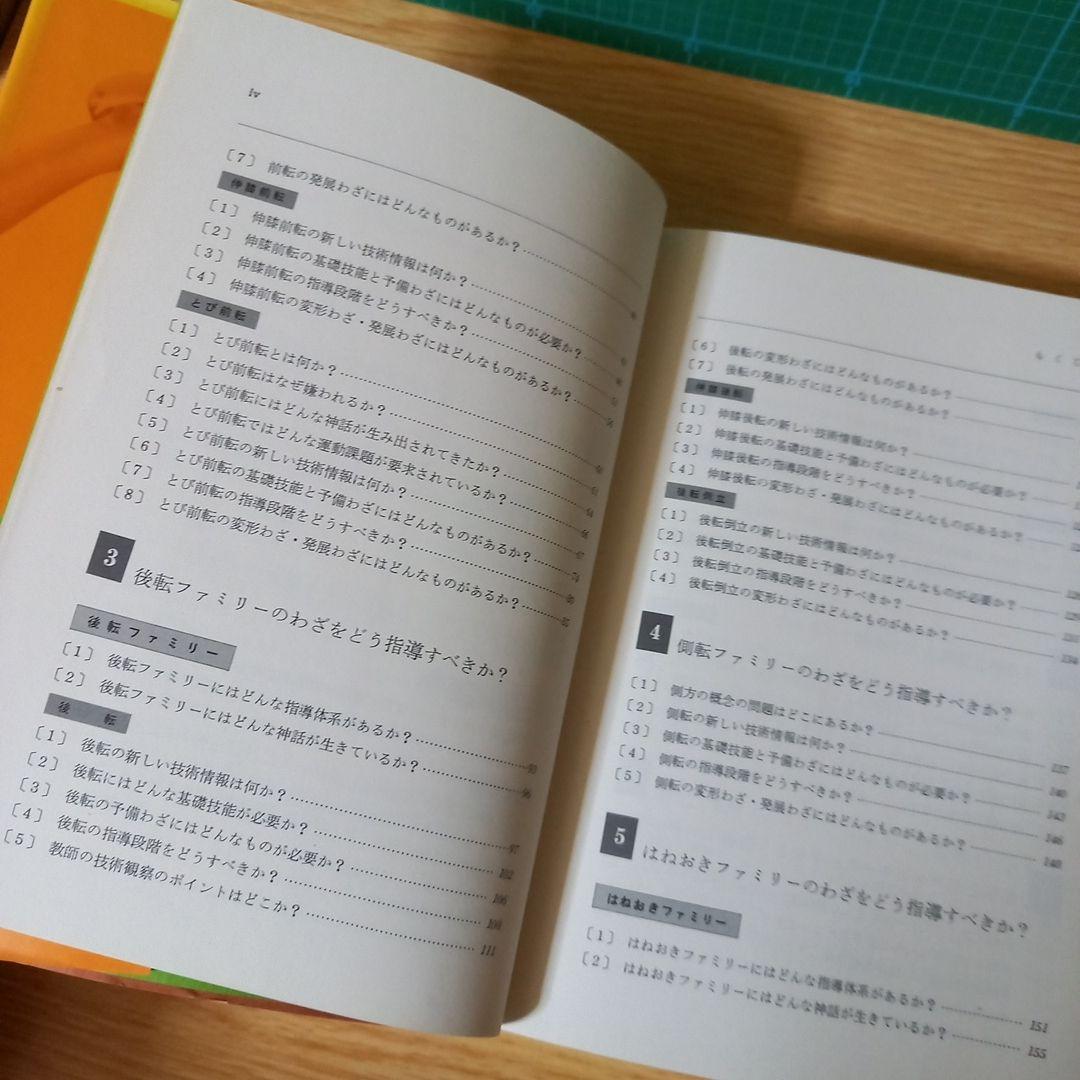 iv
〔7〕 前転の発展わざにはどんなものがあるか？
伸膝前転
〔1〕 伸膝前転の新しい技術情報は何か？
〔2〕 伸膝前転の基礎技能と予備わざにはどんなものが必要か？
〔3〕 伸膝前転の指導段階をどうすべきか？
〔4〕 伸膝前転の変形わざ・発展わざにはどんなものがあるか？
とび前転
〔1〕 とび前転とは何か？
〔2〕 とび前転はなぜ嫌われるか？
〔3〕 とび前転にはどんな神話が生み出されてきたか？
〔4〕 とび前転ではどんな運動課題が要求されているか？
〔5〕 とび前転の新しい技術情報は何か？
〔6〕 とび前転の基礎技能と予備わざにはどんなものがあるか？
〔7〕 とび前転の指導段階をどうすべきか？
〔8〕 とび前転の変形わざ・発展わざにはどんなものがあるか？ 85
3 後転ファミリーのわざをどう指導すべきか？
後転ファミリー
〔1〕 後転ファミリーにはどんな指導体系があるか？ 93
〔2〕 後転ファミリーにはどんな神話が生きているか？ 96
後 転
〔1〕 後転の新しい技術情報は何か？ 97
〔2〕 後転にはどんな基礎技能が必要か？ 102
〔3〕 後転の予備わざにはどんなものが必要か？ 106
〔4〕 後転の指導段階をどうすべきか？ 108
〔5〕 教師の技術観察のポイントはどこか？ 111
〔6〕 後転の変形わざにはどんなものがあるか？
〔7〕 後転の発展わざにはどんなものがあるか？
伸膝後転
〔1〕 伸膝後転の新しい技術情報は何か？
〔2〕 伸膝後転の基礎技能と予備わざにはどんなものが必要か？
〔3〕 伸膝後転の指導段階をどうすべきか？
〔4〕 伸膝後転の変形わざ・発展わざにはどんなものがあるか？
後転倒立
〔1〕 後転倒立の新しい技術情報は何か？
〔2〕 後転倒立の基礎技能と予備わざにはどんなものが必要か？
〔3〕 後転倒立の指導段階をどうすべきか？
〔4〕 後転倒立の変形わざにはどんなものがあるか？ 134
4 側転ファミリーのわざをどう指導すべきか？
〔1〕 側方の概念の問題はどこにあるか？ 137
〔2〕 側転の新しい技術情報は何か？ 140
〔3〕 側転の基礎技能と予備わざにはどんなものが必要か？ 143
〔4〕 側転の指導段階をどうすべきか？ 146
〔5〕 側転の変形わざ・発展わざにはどんなものがあるか？ 148
5 はねおきファミリーのわざをどう指導すべきか？
はねおきファミリー
〔1〕 はねおきファミリーにはどんな指導体系があるか？ 151
〔2〕 はねおきファミリーにはどんな神話が生きているか？ 155